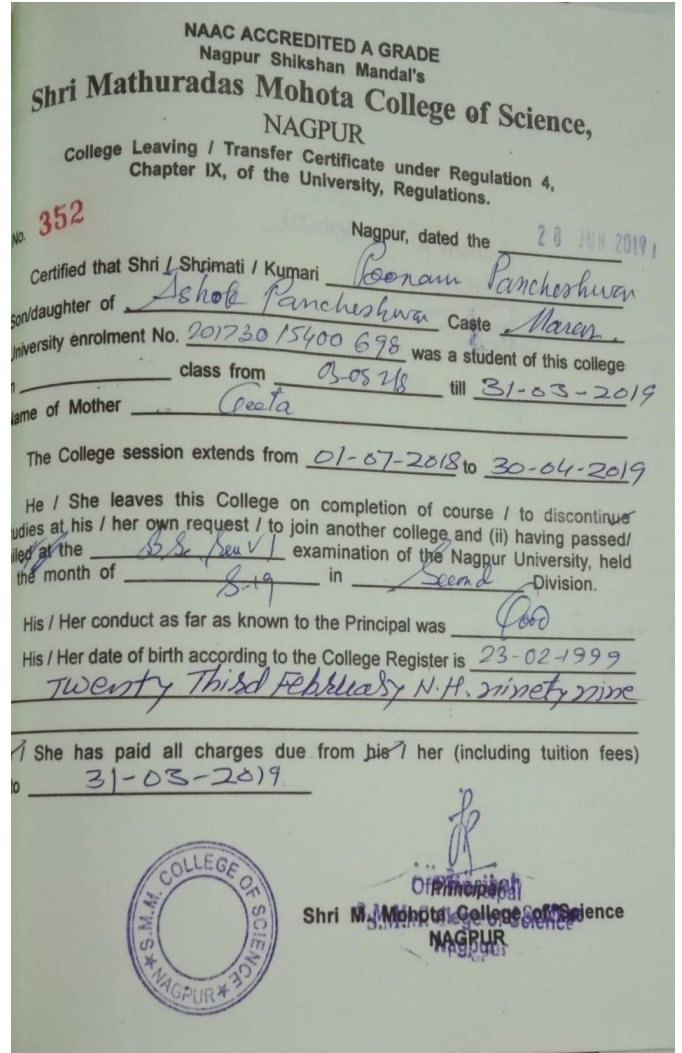 NAAC ACCREDITED A GRADE
Nagpur Shikshan Mandal's
Shri Mathuradas Mohota College of Science,
NAGPUR
College Leaving / Transfer Certificate under Regulation 4,
Chapter IX, of the University, Regulations.
No. 352
Nagpur, dated the 28 JUN 2019
Certified that Shri / Shrimati / Kumari Poonam Pancheshwar
Son/daughter of Ashok Pancheshwar Caste
University enrolment No. 201730 15400 698 was a student of this college
class from till 31-03-2019
Name of Mother Geeta
The College session extends from 01-07-2018 to 30-04-2019
He / She leaves this College on completion of course / to discontinue
udies at his / her own request / to join another college and (ii) having passed/
iled at the B.Sc. Sem VI examination of the Nagpur University, held
the month of S-19 in Second Division.
His / Her conduct as far as known to the Principal was Good
His / Her date of birth according to the College Register is 23-02-1999
Twenty Third February N.H. ninety nine
/ She has paid all charges due from his / her (including tuition fees)
to 31-03-2019
Principal
Shri M. Mohota College of Science
NAGPUR
S.M.M. COLLEGE OF SCIENCE
NAGPUR